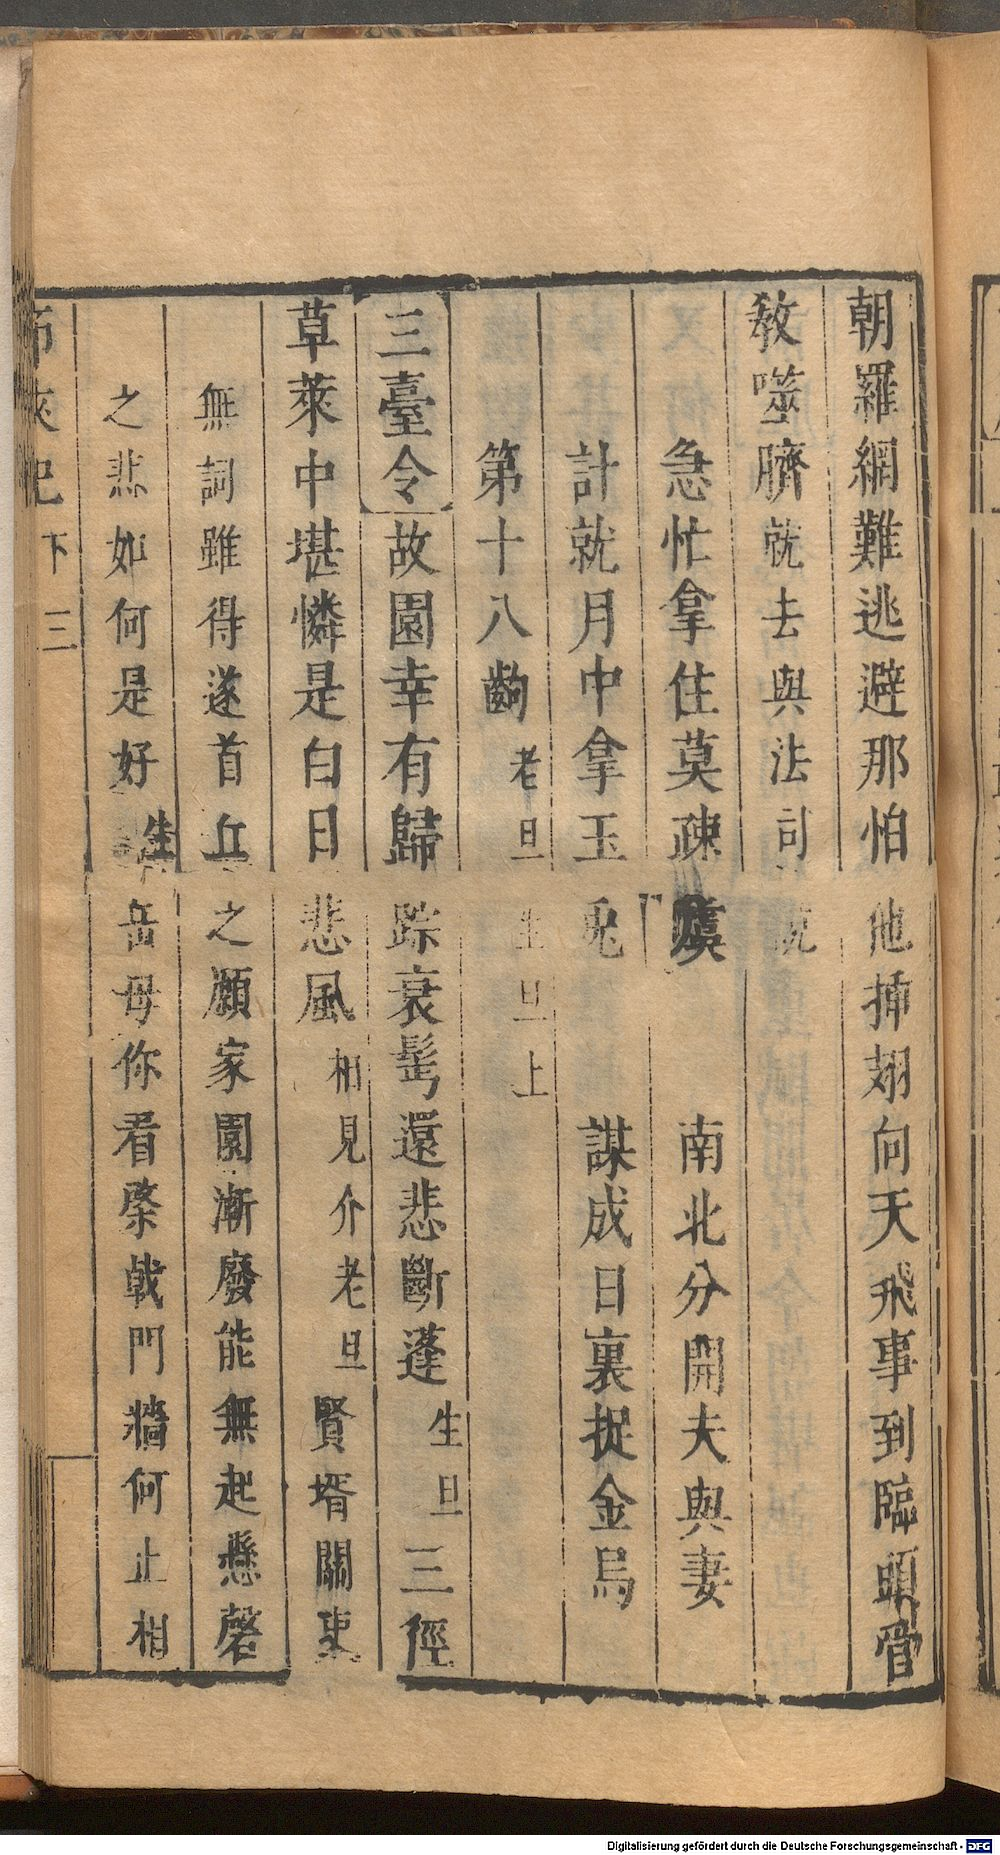 朝羅網難逃避那怕他揷翅向天飛事到臨頭管
敎噬臍就去與法司說
急忙拿住莫疎虞　南北分開夫與妻
計就月中拿玉兎　謀成日裏捉金烏
第十八齣老旦生旦上
三臺令故園幸有歸踪衰髩還悲斷蓬生旦三徑
草萊中堪憐是白日悲風相見介老旦賢壻關東
無詞雖得遂首丘之願家園漸廢能無起懸磬
之悲如何是好生岳母你看棨戟門牆何止相
節俠記下　三
Digitalisierung gefördert durch die Deutsche Forschungsgemeinschaft - DFG